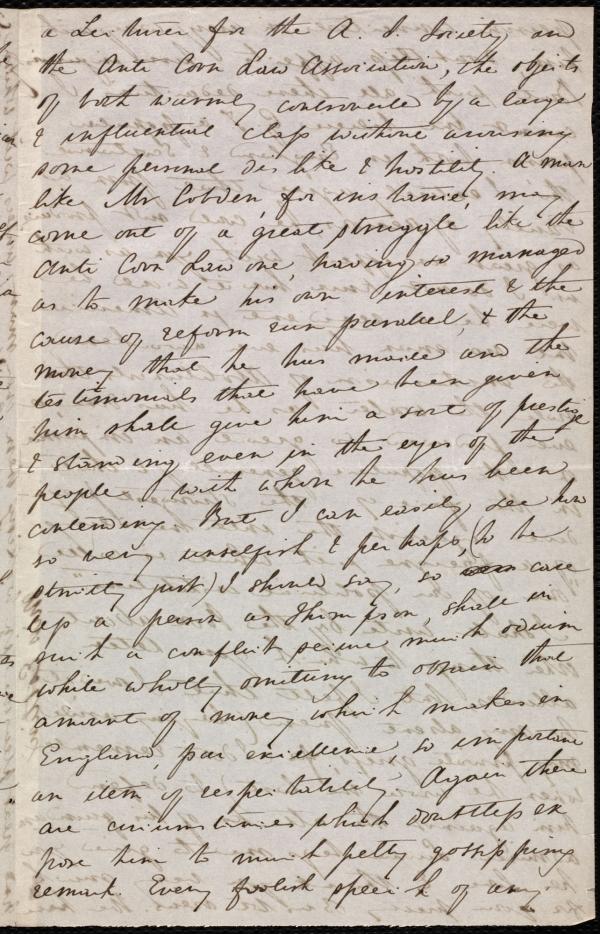 a Lecturer for the A. S. Society and
the Anti Corn Law Association, the objects
of both warmly controverted by a large
& influential class without arousing
some personal dislike & hostility. A man
like Mr Cobden, for instance, may
come out of a great struggle like the
Anti Corn Law one, having so managed
as to make his own interest & the
cause of reform run parallel, & the
money that he has made and the
testimonials that have been given
him shall give him a sort of prestige
& standing even in the eyes of the
people with whom he has been
contending. But I can easily see how
so very unselfish & perhaps, (to be
strictly just) I should say, so care
less a person as Thompson, shall in
such a conflict secure much odium
while wholly omitting to obtain that
amount of money which makes in
England, par excellence, so important
an item of respectability. Again there
are circumstances which doubtless ex
pose him to much petty gossipping
remark. Every foolish speech of any